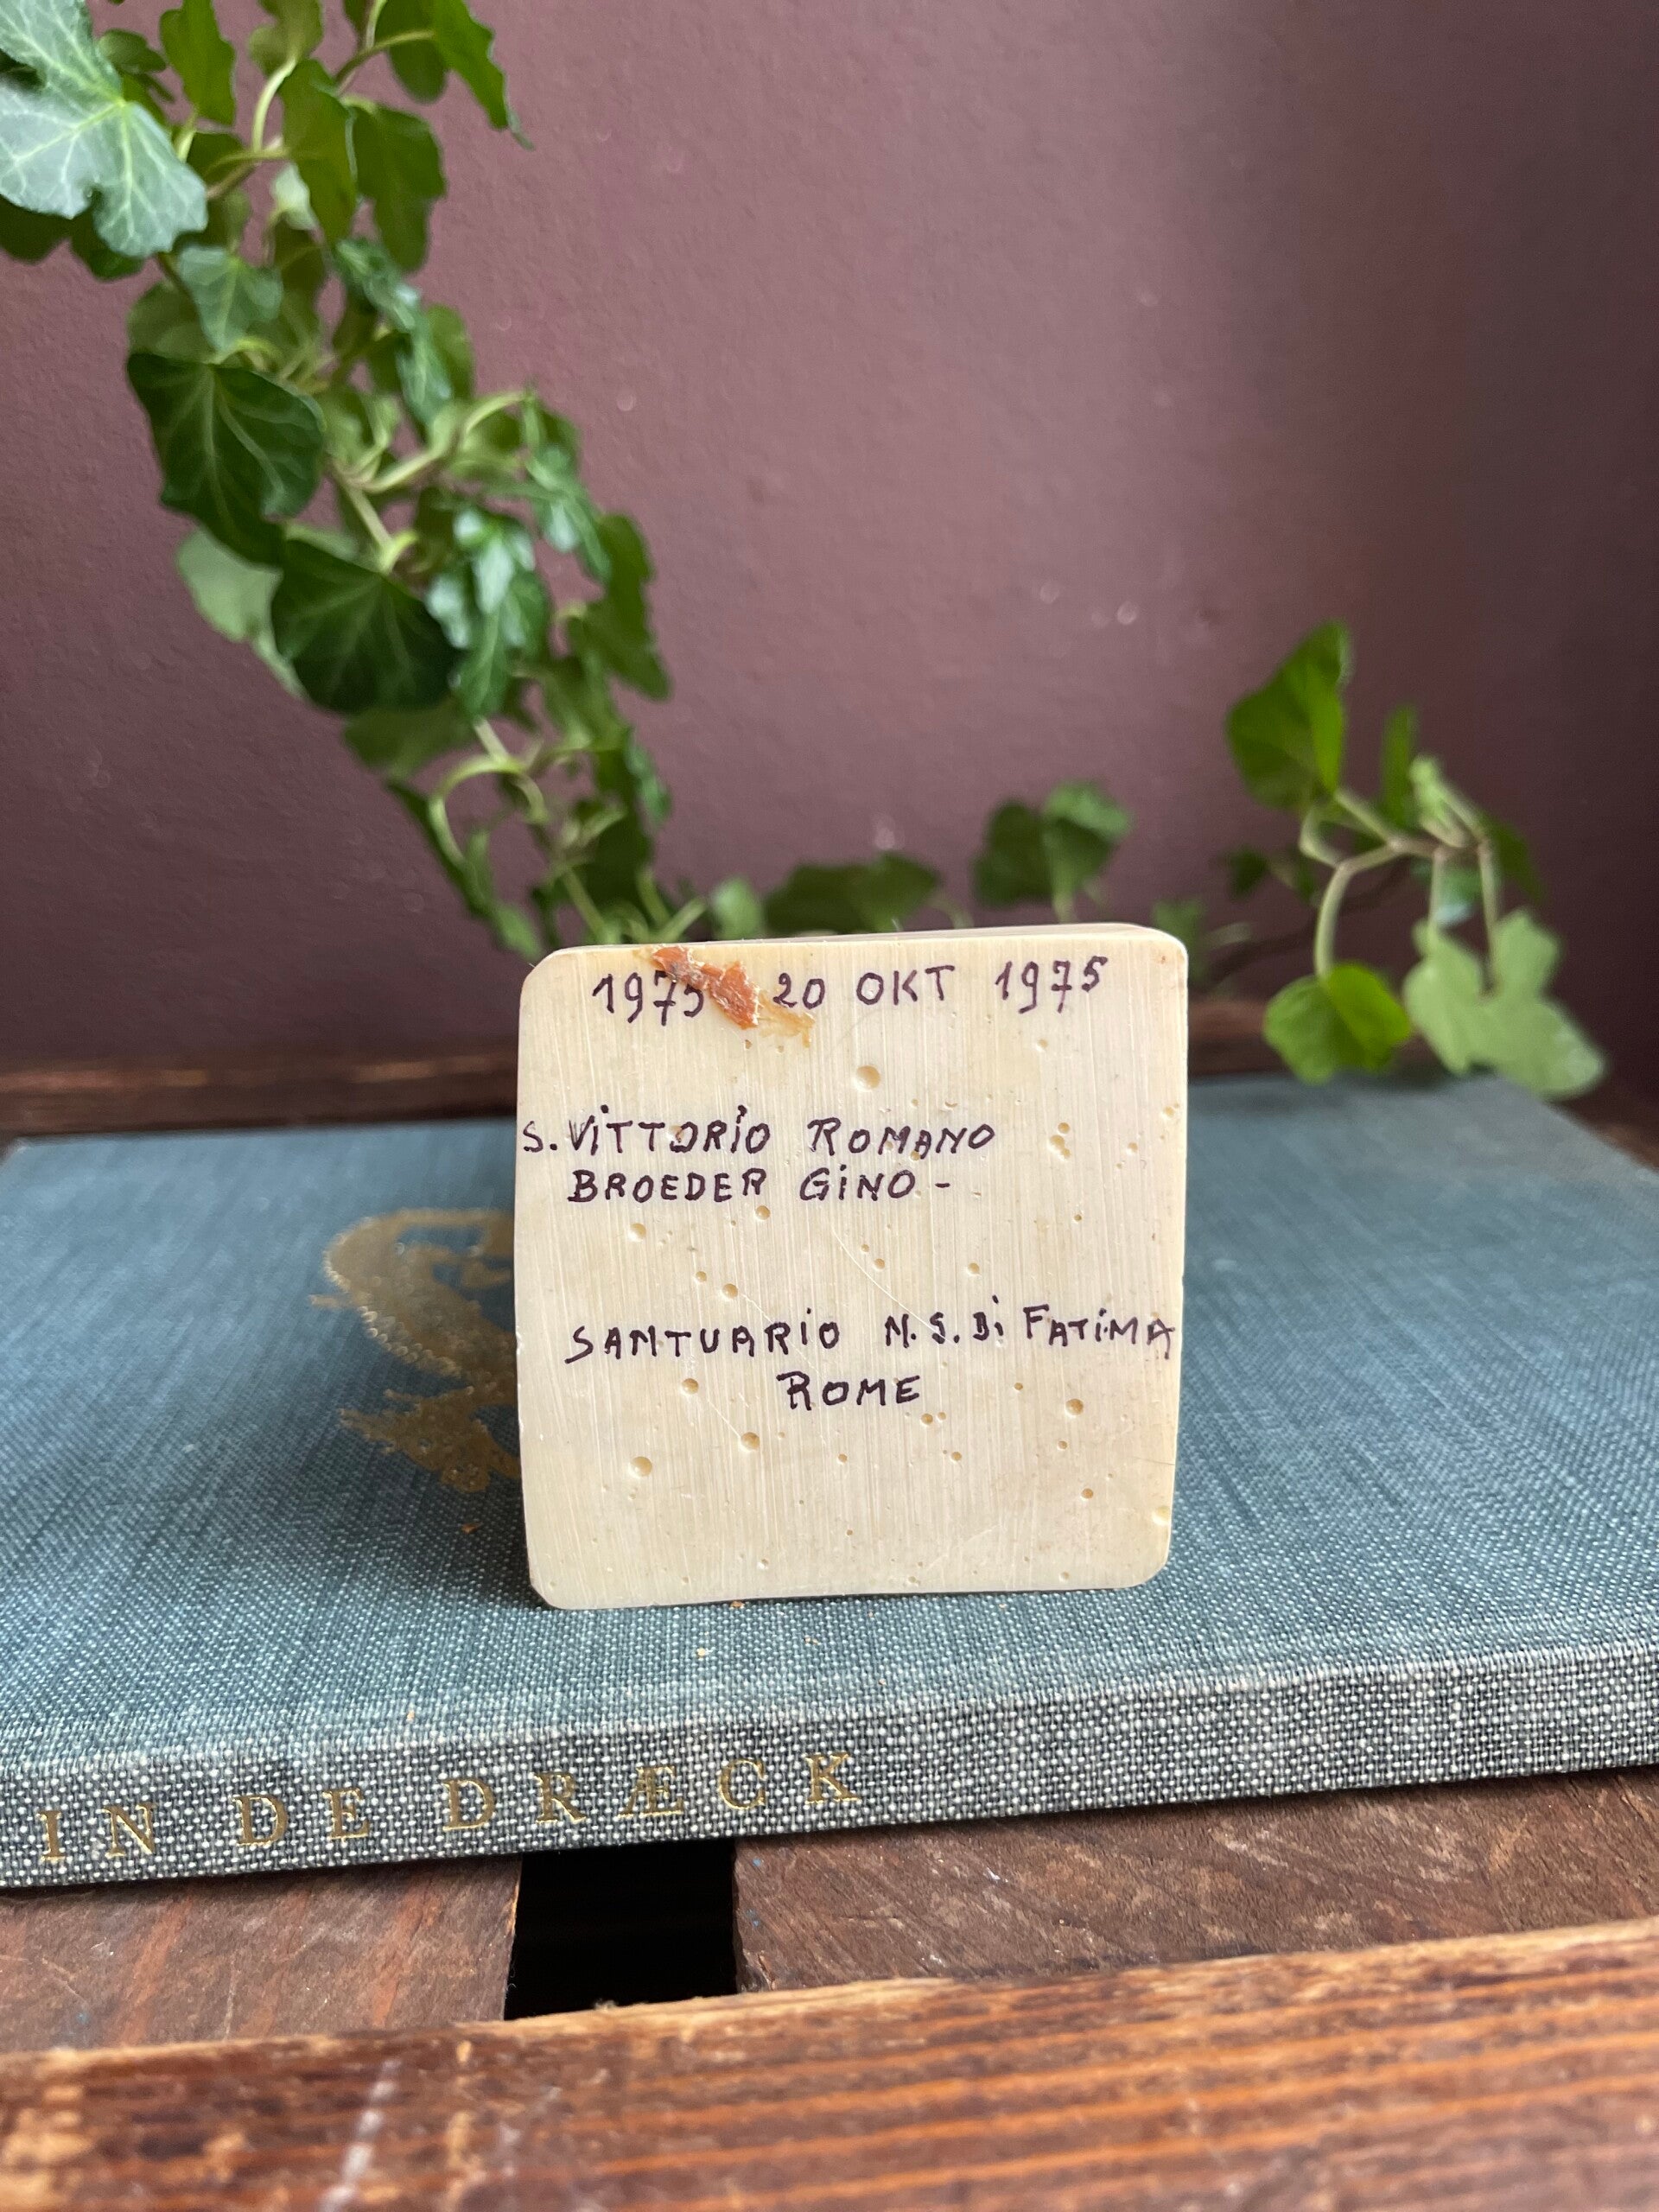 1975 20 OKT 1975
S. ViTTORiO ROMANO
BROEDER GiNO -
SAMTUARiO N. S. Di FATiMA
ROME
IN DE DRÆCK